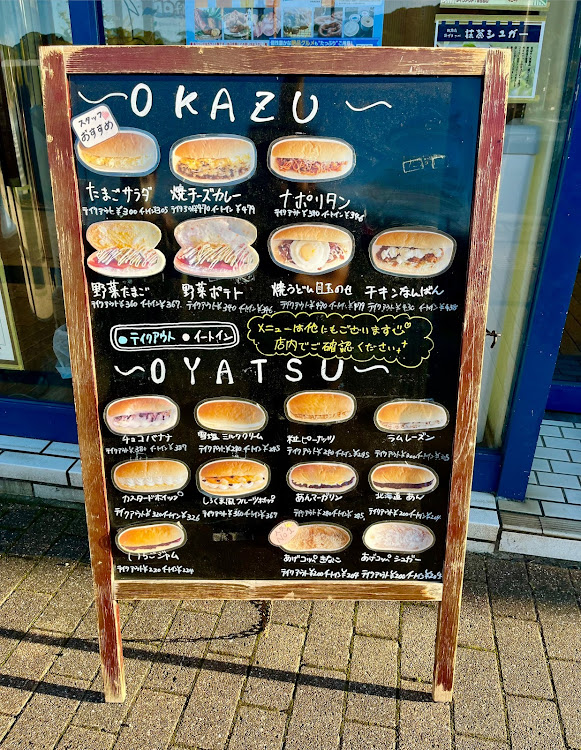 抹茶シュガー
OKAZU
スタッフ
おすすめ
たまごサラダ
テイクアウト¥300 イートイン¥305
焼チーズカレー
テイクアウト¥470 イートイン¥479
ナポリタン
テイクアウト¥390 イートイン
野菜たまご
テイクアウト¥360 イートイン¥367
野菜ポテト
テイクアウト¥390 イートイン
焼うどん目玉のせ
テイクアウト¥470 イートイン¥479
チキンなんばん
テイクアウト¥430 イートイン¥438
●テイクアウト ●イートイン
メニューは他にもございます
店内でご確認ください
OYATSU
チョコバナナ
テイクアウト¥380 イートイン¥387
ミルククリーム
テイクアウト¥280 イートイン¥285
粒ピーナッツ
テイクアウト¥280 イートイン¥285
ラムレーズン
テイクアウト
カスタードホイップ
テイクアウト¥320 イートイン¥326
しろくま風フルーツホイップ
テイクアウト¥360 イートイン¥367
あんマーガリン
テイクアウト¥280 イートイン¥285
北海道あん
テイクアウト
いちごジャム
テイクアウト¥220 イートイン¥224
あげコッペきなこ
テイクアウト¥200 イートイン¥204
あげコッペシュガー
テイクアウト¥200 イートイン¥204